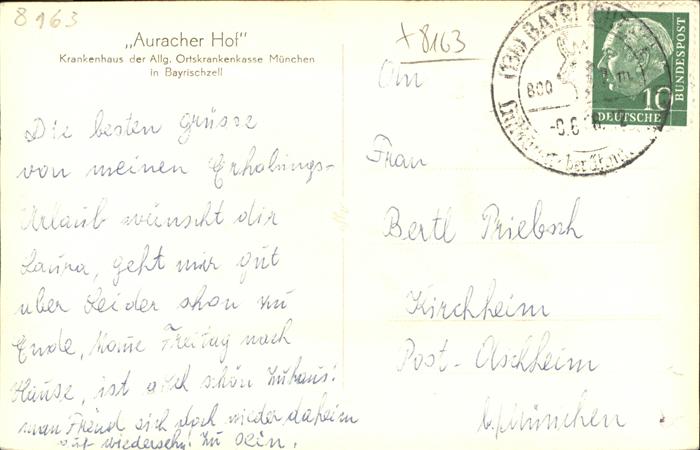 8163
„Auracher Hof"
Krankenhaus der Allg. Ortskrankenkasse München
in Bayrischzell
Die besten Grüsse
von meinen Erholungs-
Urlaub wünscht dir
Laura, geht mir gut
uber Leider schon zu
Ende, Kome Freitag nach
Hause, ist auch schön Zuhaus!
man Freud sich doch wieder daheim
auf wiedersehn! Zu sein.
+8163
An
Frau
Bertl Priebsch
Kirchheim
Post-Aschheim
b/München
(13b) BAYRISCHZELL
800
m
DEUTSCHE
BUNDESPOST
10